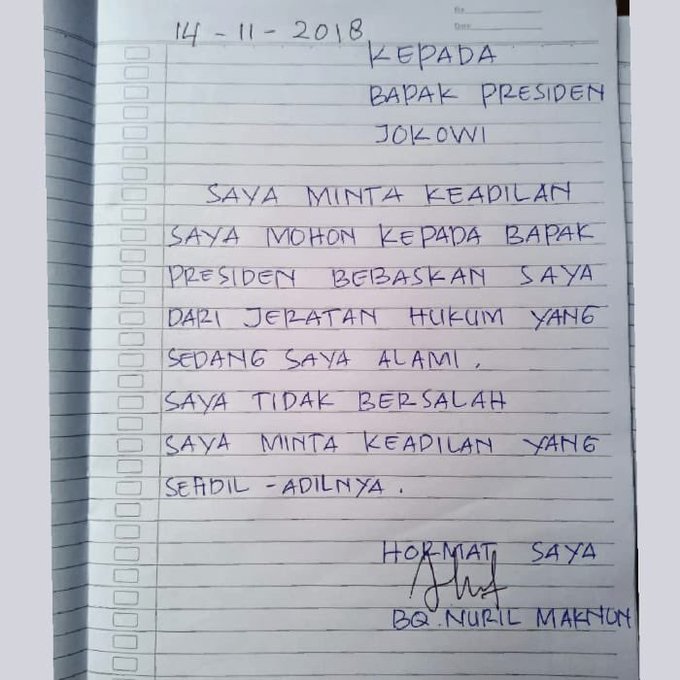 No.
Date
14 - 11 - 2018
KEPADA
BAPAK PRESIDEN
JOKOWI
SAYA MINTA KEADILAN
SAYA MOHON KEPADA BAPAK
PRESIDEN BEBASKAN SAYA
DARI JERATAN HUKUM YANG
SEDANG SAYA ALAMI.
SAYA TIDAK BERSALAH
SAYA MINTA KEADILAN YANG
SEADIL - ADILNYA.
HORMAT SAYA
BQ. NURIL MAKNUN